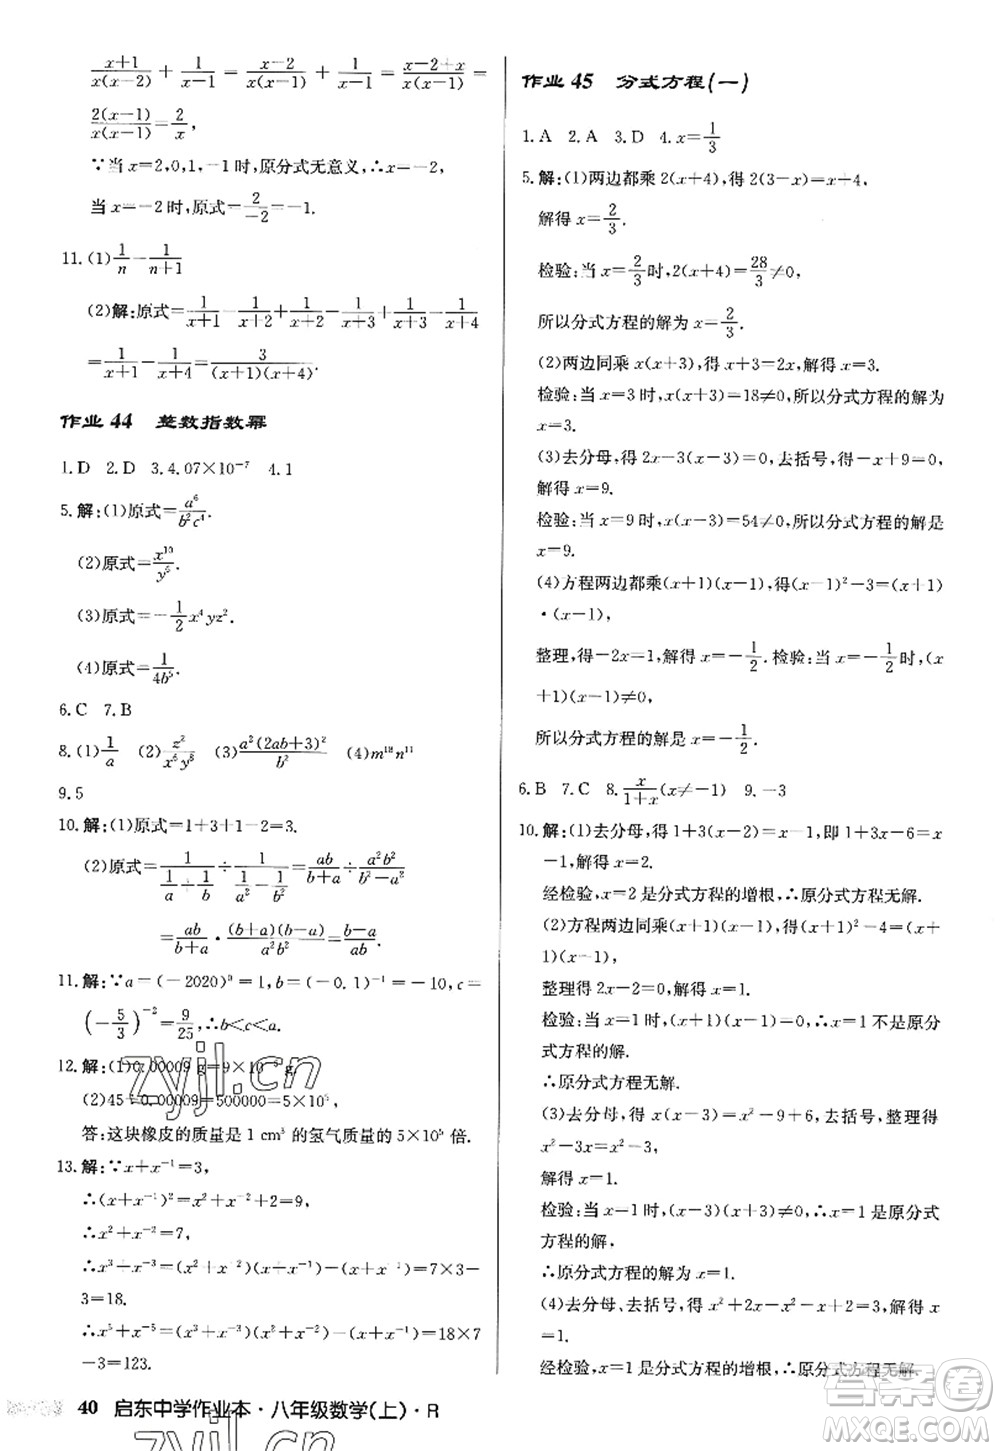 (x+1)/(x(x-2)) + 1/(x-1) = (x-2)/(x(x-1)) + 1/(x-1) = (x-2+x)/(x(x-1)) =
2(x-1)/(x(x-1)) = 2/x,
∵当 x=2,0,1,-1时,原分式无意义,∴x=-2,
当 x=-2时,原式=2/(-2)=-1.
11.(1)1/n - 1/(n+1)
(2)解:原式=1/(x+1) - 1/(x+2) + 1/(x+2) - 1/(x+3) + 1/(x+3) - 1/(x+4)
=1/(x+1) - 1/(x+4) = 3/((x+1)(x+4)).
作业 44 整数指数幂
1.D 2.D 3.4.07×10⁻⁷ 4.1
5.解:(1)原式=a⁶/(b²c⁴).
(2)原式=x¹⁰/y⁵.
(3)原式=-1/2 x⁴yz².
(4)原式=1/(4b⁵).
6.C 7.B
8.(1)1/a (2)z²/(x⁶y⁸) (3)a²(2ab+3)²/b² (4)m¹³n¹¹
9.5
10.解:(1)原式=1+3+1-2=3.
(2)原式=1/(1/a+1/b) ÷ 1/(1/a²-1/b²) = ab/(b+a) ÷ a²b²/(b²-a²)
=ab/(b+a) · (b+a)(b-a)/(a²b²) = (b-a)/(ab).
11.解:∵a=(-2020)⁰=1,b=(-0.1)⁻¹=-10,c=
(-5/3)⁻²=9/25,∴b<c<a.
12.解:(1)0.00009 g=9×10⁻⁵ g.
(2)45÷0.00009=500000=5×10⁵.
答:这块橡皮的质量是1 cm³的氢气质量的5×10⁵倍.
13.解:∵x+x⁻¹=3,
∴(x+x⁻¹)²=x²+x⁻²+2=9,
∴x²+x⁻²=7,
∴x³+x⁻³=(x²+x⁻²)(x+x⁻¹)-(x+x⁻¹)=7×3-
3=18.
∴x⁵+x⁻⁵=(x³+x⁻³)(x²+x⁻²)-(x+x⁻¹)=18×7
-3=123.
40 启东中学作业本·八年级数学(上)·R
作业 45 分式方程(一)
1.A 2.A 3.D 4.x=1/3
5.解:(1)两边都乘2(x+4),得2(3-x)=x+4,
解得 x=2/3.
检验:当 x=2/3时,2(x+4)=28/3≠0,
所以分式方程的解为 x=2/3.
(2)两边同乘x(x+3),得x+3=2x,解得x=3.
检验:当 x=3时,x(x+3)=18≠0,所以分式方程的解为
x=3.
(3)去分母,得2x-3(x-3)=0,去括号,得-x+9=0,
解得 x=9.
检验:当 x=9时,x(x-3)=54≠0,所以分式方程的解是
x=9.
(4)方程两边都乘(x+1)(x-1),得(x-1)²-3=(x+1)
·(x-1),
整理,得-2x=1,解得 x=-1/2.检验:当 x=-1/2时,(x
+1)(x-1)≠0,
所以分式方程的解是 x=-1/2.
6.B 7.C 8.x/(1+x)(x≠-1) 9.-3
10.解:(1)去分母,得1+3(x-2)=x-1,即1+3x-6=x
-1,解得 x=2.
经检验,x=2是分式方程的增根,∴原分式方程无解.
(2)方程两边同乘(x+1)(x-1),得(x+1)²-4=x²
-1,
整理得2x=2,解得x=1.
检验:当 x=1时,(x+1)(x-1)=0,∴x=1不是原分
式方程的解.
∴原分式方程无解.
(3)去分母,得x(x-3)=x²-9+6,去括号,整理得
x²-3x=x²-3,
解得 x=1.
检验:当 x=1时,(x-3)(x+3)≠0,∴x=1是原分式
方程的解.
∴原分式方程的解为x=1.
(4)去分母、去括号,得x²+2x-x²-x+2=3,解得
x=1.
经检验,x=1是分式方程的增根,∴原分式方程无解.
zyjl.cn
答案圈
MXQE.COM